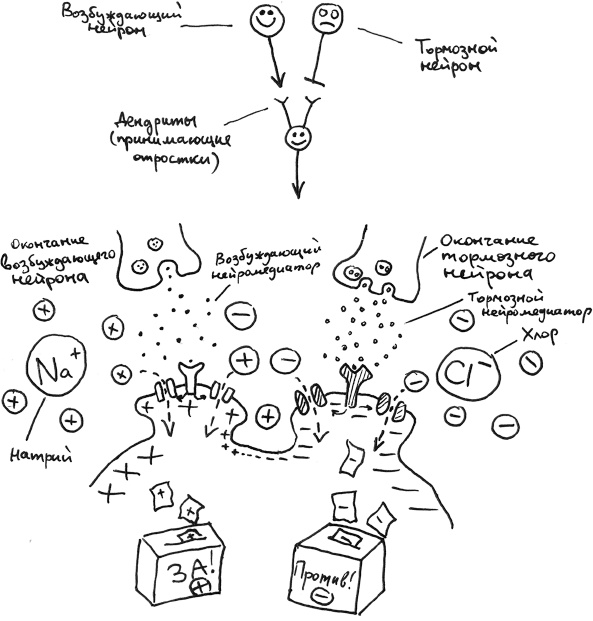 Возбуждающий
нейрон
Тормозной
нейрон
Дендриты
(принимающие
отростки)
Окончание
возбуждающего
нейрона
Возбуждающий
нейромедиатор
Окончание
тормозного
нейрона
Тормозной
нейромедиатор
Хлор
Na+
Cl−
Натрий
ЗА!
Против!